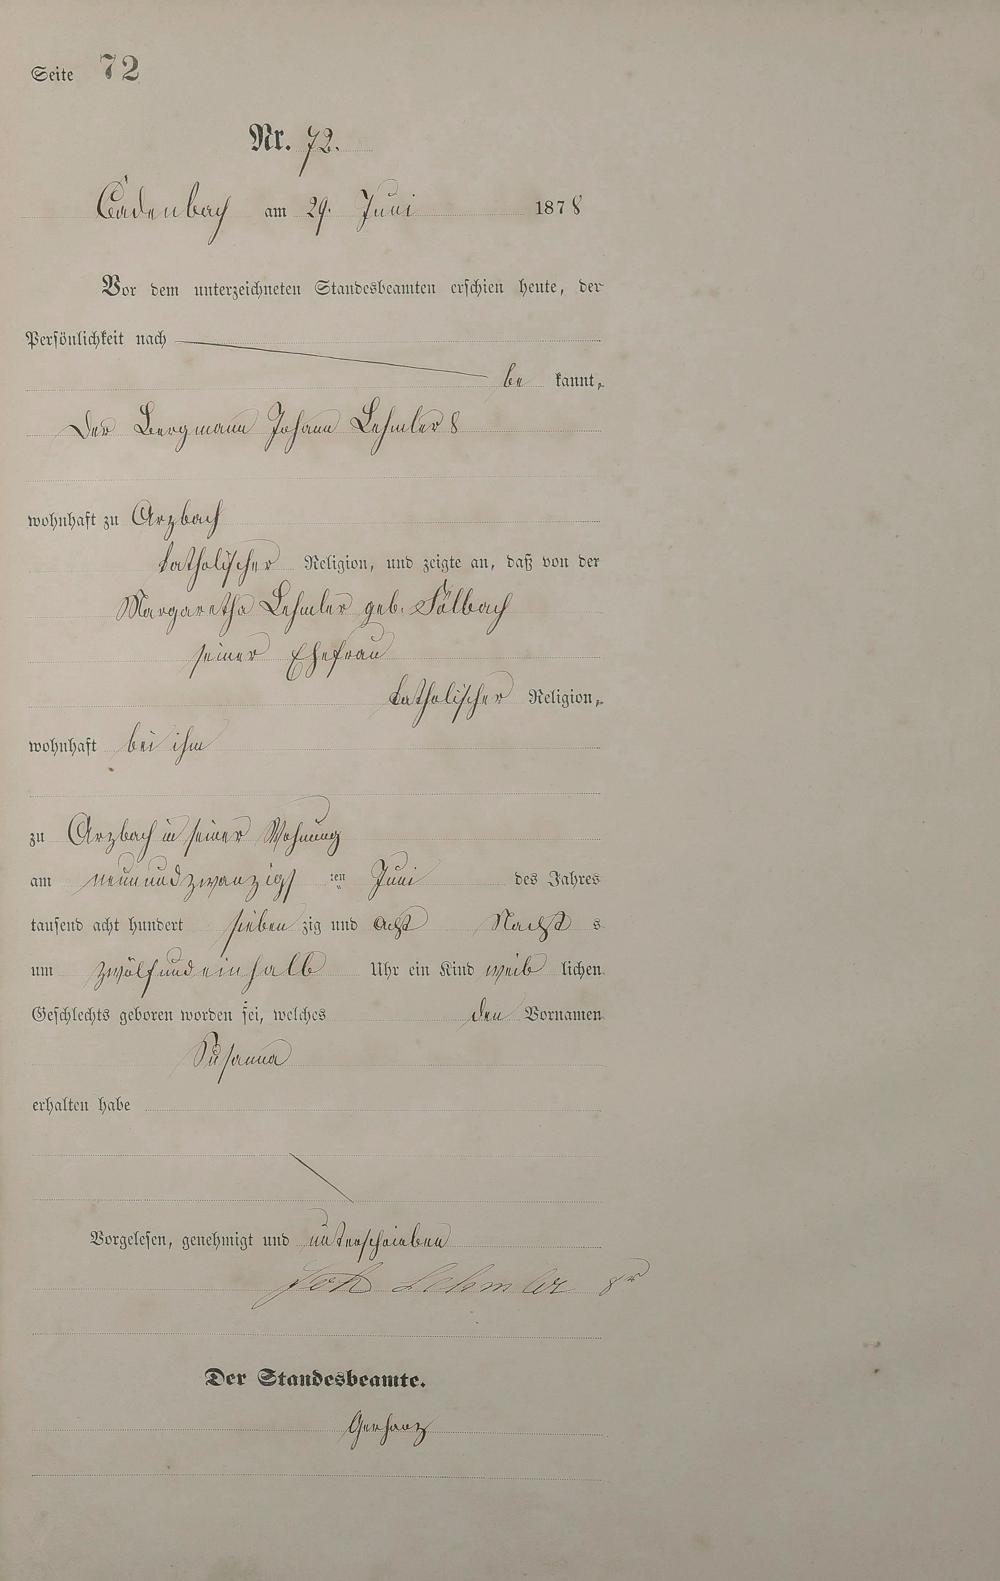 Seite 72
Nr. 72.
Cadenbach am 29. Juni 1878
Vor dem unterzeichneten Standesbeamten erschien heute, der
Persönlichkeit nach
be kannt,
Der Bergmann Johann Lehmler 8
wohnhaft zu Arzbach
katholischer Religion, und zeigte an, daß von der
Margaretha Lehmler geb. Sölbach
seiner Ehefrau
katholischer Religion,
wohnhaft bei ihm
zu Arzbach in seiner Wohnung
am neunundzwanzigs ten Juni des Jahres
tausend acht hundert sieben zig und acht Nacht s
um zwölfundeinhalb Uhr ein Kind weib lichen
Geschlechts geboren worden sei, welches den Vornamen
Susanna
erhalten habe
Vorgelesen, genehmigt und unterschrieben
Joh Lehmler 8r
Der Standesbeamte.
Gerharz